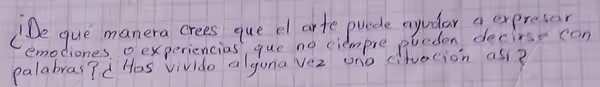 ¿De que manera crees que el arte puede ayudar a expresar
emociones o experiencias que no ciempre pueden decirse con
palabras? ¿ Has vivido alguna vez una cituación así?